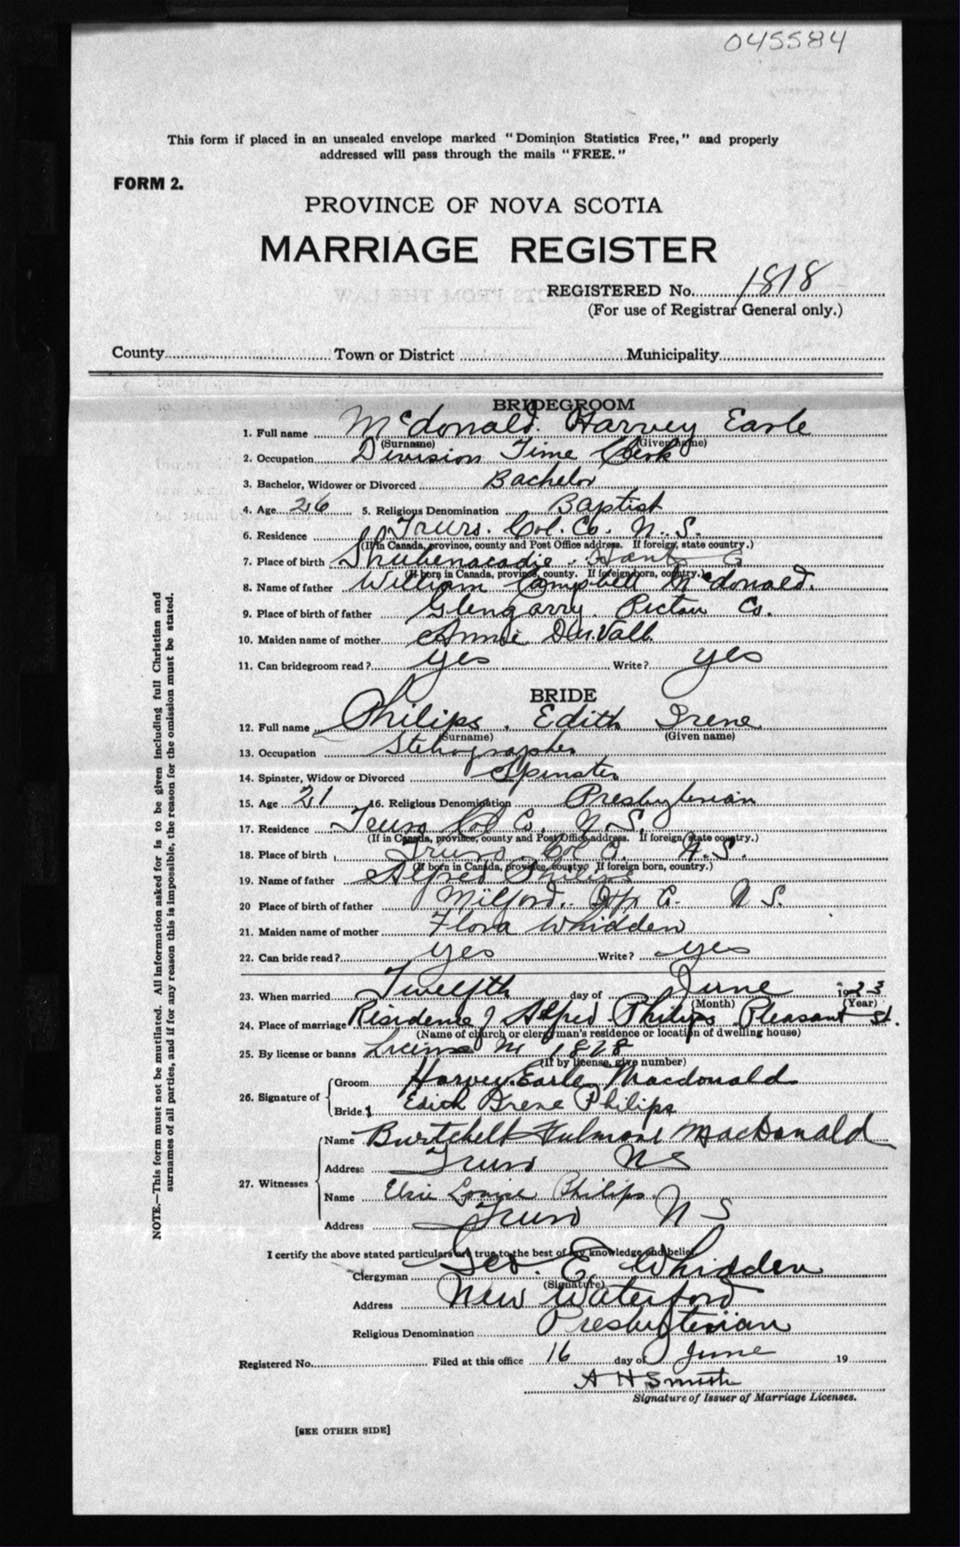 045584
This form if placed in an unsealed envelope marked "Dominion Statistics Free," and properly
addressed will pass through the mails "FREE."
FORM 2.
PROVINCE OF NOVA SCOTIA
MARRIAGE REGISTER
REGISTERED No. 1818
(For use of Registrar General only.)
County Town or District Municipality
BRIDEGROOM
1. Full name McDonald. Harvey Earle
(Surname) (Given name)
2. Occupation Division Time Clerk
3. Bachelor, Widower or Divorced Bachelor
4. Age 26 5. Religious Denomination Baptist
6. Residence Truro. Col. Co. N. S.
(If in Canada, province, county and Post Office address. If foreign, state country.)
7. Place of birth Shubenacadie Hants Co
(If born in Canada, province, county. If foreign born, country.)
8. Name of father William Campbell McDonald.
9. Place of birth of father Glengarry Pictou Co.
10. Maiden name of mother Annie
11. Can bridegroom read? yes Write? yes
BRIDE
12. Full name Philips, Edith Irene
(Surname) (Given name)
13. Occupation Stenographer
14. Spinster, Widow or Divorced Spinster
15. Age 21 16. Religious Denomination Presbyterian
17. Residence Truro Col Co. N. S.
(If in Canada, province, county and Post Office address. If foreign state country.)
18. Place of birth Truro Col Co. N. S.
(If born in Canada, province, country. If foreign born, country.)
19. Name of father Alfred Philips
20 Place of birth of father Milford. N S.
21. Maiden name of mother Flora Whidden
22. Can bride read? yes Write? yes
23. When married Twelfth day of June 1923
(Month) (Year)
24. Place of marriage Residence of Alfred Philips Pleasant St.
(Name of church or clergyman's residence or location of dwelling house)
25. By license or banns License No 1828
(If by license, give number)
26. Signature of Groom Harvey Earle Macdonald
Bride Edith Irene Philips
27. Witnesses Name Burtchell Fulmore MacDonald
Address Truro NS
Name Elsie Louise Philips
Address Truro N S
I certify the above stated particulars are true to the best of my knowledge and belief
Clergyman Geo. E Whidden
(Signature)
Address New Waterford
Religious Denomination Presbyterian
Registered No. Filed at this office 16 day of June 19
A H Smith
Signature of Issuer of Marriage Licenses.
[SEE OTHER SIDE]
NOTE.—This form must not be mutilated. All information asked for is to be given including full Christian and
surnames of all parties, and if for any reason this is impossible, the reason for the omission must be stated.